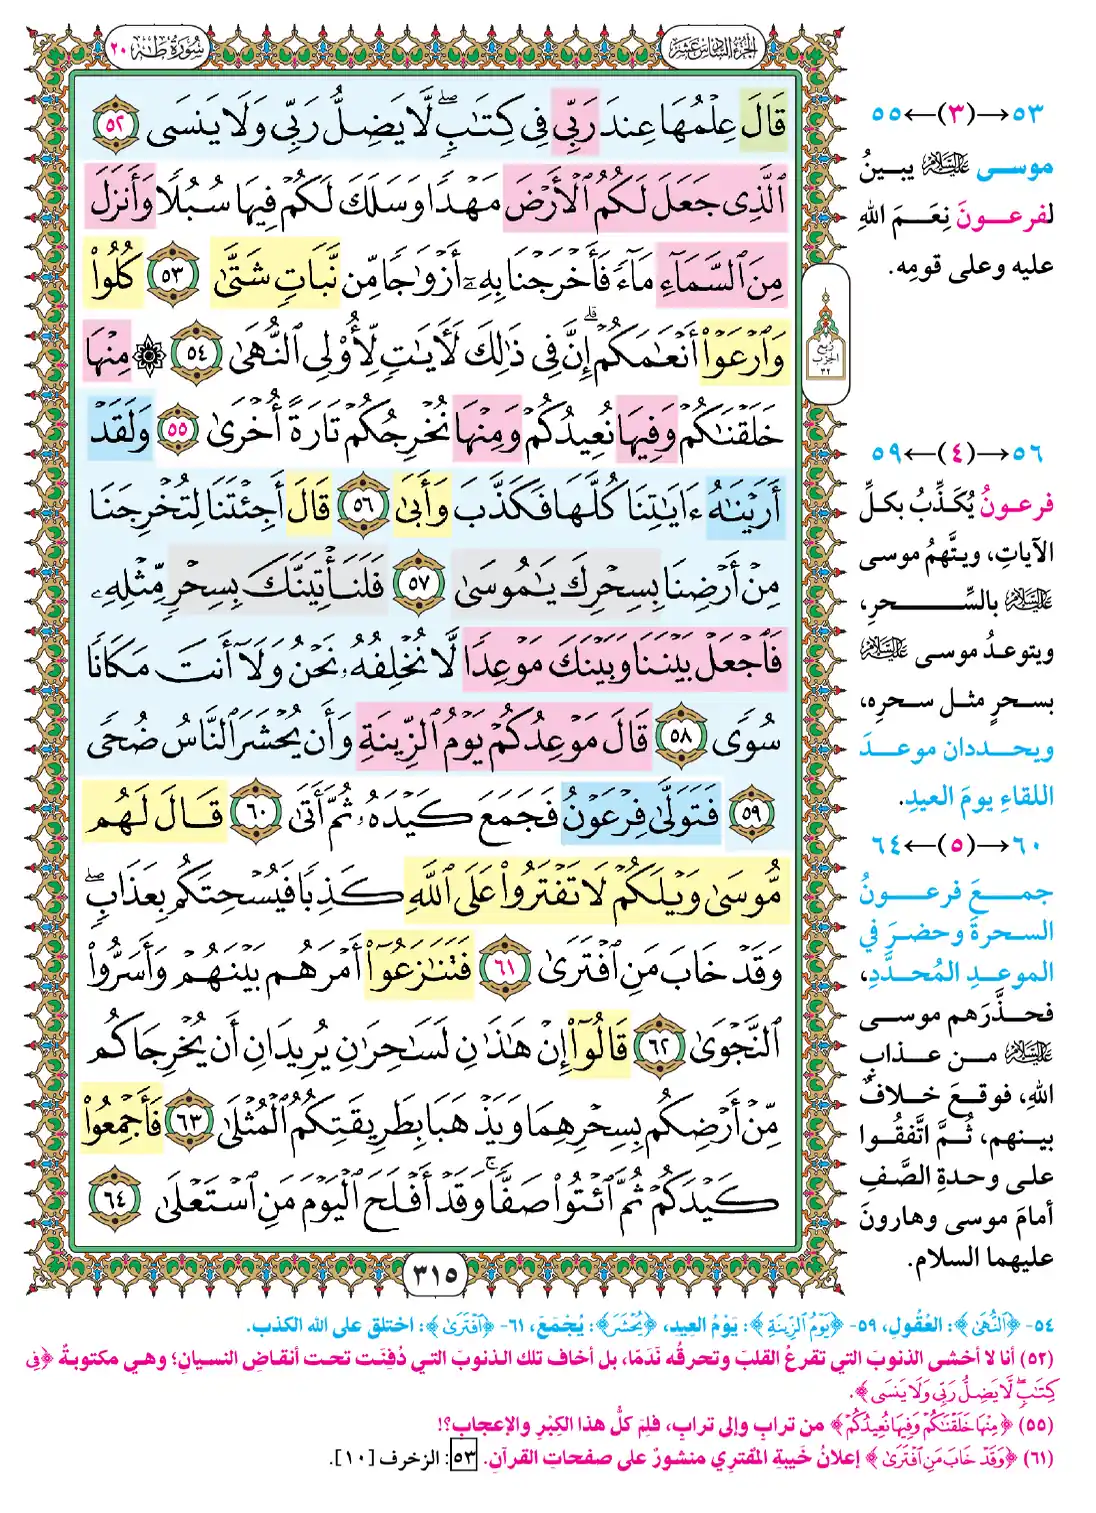 الجزء السادس عشر
سورة طه ٢٠
قَالَ عِلْمُهَا عِندَ رَبِّى فِى كِتَٰبٍۖ لَّا يَضِلُّ رَبِّى وَلَا يَنسَى ٥٢
ٱلَّذِى جَعَلَ لَكُمُ ٱلْأَرْضَ مَهْدًا وَسَلَكَ لَكُمْ فِيهَا سُبُلًا وَأَنزَلَ
مِنَ ٱلسَّمَآءِ مَآءً فَأَخْرَجْنَا بِهِۦٓ أَزْوَٰجًا مِّن نَّبَاتٍ شَتَّىٰ ٥٣ كُلُوا۟
وَٱرْعَوْا۟ أَنْعَٰمَكُمْۗ إِنَّ فِى ذَٰلِكَ لَءَايَٰتٍ لِّأُو۟لِى ٱلنُّهَىٰ ٥٤ ۞ مِنْهَا
خَلَقْنَٰكُمْ وَفِيهَا نُعِيدُكُمْ وَمِنْهَا نُخْرِجُكُمْ تَارَةً أُخْرَىٰ ٥٥ وَلَقَدْ
أَرَيْنَٰهُ ءَايَٰتِنَا كُلَّهَا فَكَذَّبَ وَأَبَىٰ ٥٦ قَالَ أَجِئْتَنَا لِتُخْرِجَنَا
مِنْ أَرْضِنَا بِسِحْرِكَ يَٰمُوسَىٰ ٥٧ فَلَنَأْتِيَنَّكَ بِسِحْرٍ مِّثْلِهِۦ
فَٱجْعَلْ بَيْنَنَا وَبَيْنَكَ مَوْعِدًا لَّا نُخْلِفُهُۥ نَحْنُ وَلَآ أَنتَ مَكَانًا
سُوًى ٥٨ قَالَ مَوْعِدُكُمْ يَوْمُ ٱلزِّينَةِ وَأَن يُحْشَرَ ٱلنَّاسُ ضُحًى
٥٩ فَتَوَلَّىٰ فِرْعَوْنُ فَجَمَعَ كَيْدَهُۥ ثُمَّ أَتَىٰ ٦٠ قَالَ لَهُم
مُّوسَىٰ وَيْلَكُمْ لَا تَفْتَرُوا۟ عَلَى ٱللَّهِ كَذِبًا فَيُسْحِتَكُم بِعَذَابٍۖ
وَقَدْ خَابَ مَنِ ٱفْتَرَىٰ ٦١ فَتَنَٰزَعُوٓا۟ أَمْرَهُم بَيْنَهُمْ وَأَسَرُّوا۟
ٱلنَّجْوَىٰ ٦٢ قَالُوٓا۟ إِنْ هَٰذَٰنِ لَسَٰحِرَٰنِ يُرِيدَانِ أَن يُخْرِجَاكُم
مِّنْ أَرْضِكُم بِسِحْرِهِمَا وَيَذْهَبَا بِطَرِيقَتِكُمُ ٱلْمُثْلَىٰ ٦٣ فَأَجْمِعُوا۟
كَيْدَكُمْ ثُمَّ ٱئْتُوا۟ صَفًّاۚ وَقَدْ أَفْلَحَ ٱلْيَوْمَ مَنِ ٱسْتَعْلَىٰ ٦٤
٣١٥
ربع
الحزب
٣٢
٥٣→(٣)←٥٥
موسى عليه السلام يبينُ
لفرعـونَ نِعَـمَ اللهِ
عليه وعلى قومِه.
٥٦→(٤)←٥٩
فرعـونُ يُكَذِّبُ بكلِّ
الآياتِ، ويتَّهمُ موسى
عليه السلام بالسِّـحرِ،
ويتوعدُ موسى عليه السلام
بسحرٍ مثل سحرِه،
ويحددان موعدَ
اللقاءِ يومَ العيدِ.
٦٠→(٥)←٦٤
جمـعَ فرعـونُ
السحرةَ وحضرَ في
الموعدِ المُحدَّدِ،
فحذَّرَهم موسى
عليه السلام من عذابِ
اللهِ، فوقعَ خلافٌ
بينهم، ثُـمَّ اتَّفقُـوا
على وحدةِ الصَّفِ
أمامَ موسى وهارونَ
عليهما السلام.
٥٤- ﴿ٱلنُّهَىٰ﴾: العُقُولِ، ٥٩- ﴿يَوْمُ ٱلزِّينَةِ﴾: يَوْمُ العِيدِ، ﴿يُحْشَرَ﴾: يُجْمَعَ، ٦١- ﴿ٱفْتَرَىٰ﴾: اختلق على الله الكذب.
(٥٢) أنا لا أخشى الذنوبَ التي تقرعُ القلبَ وتحرقُه نَدَمًا، بل أخاف تلك الذنوبَ التي دُفِنَت تحت أنقاضِ النسيانِ؛ وهي مكتوبةٌ ﴿فِى
كِتَٰبٍۖ لَّا يَضِلُّ رَبِّى وَلَا يَنسَى﴾.
(٥٥) ﴿مِنْهَا خَلَقْنَٰكُمْ وَفِيهَا نُعِيدُكُمْ﴾ من ترابٍ وإلى ترابٍ، فلِمَ كلُّ هذا الكِبْرِ والإعجابِ؟!
(٦١) ﴿وَقَدْ خَابَ مَنِ ٱفْتَرَىٰ﴾ إعلانُ خَيبةِ المُفتري منشورٌ على صفحاتِ القرآنِ. ٥٣: الزخرف [١٠].